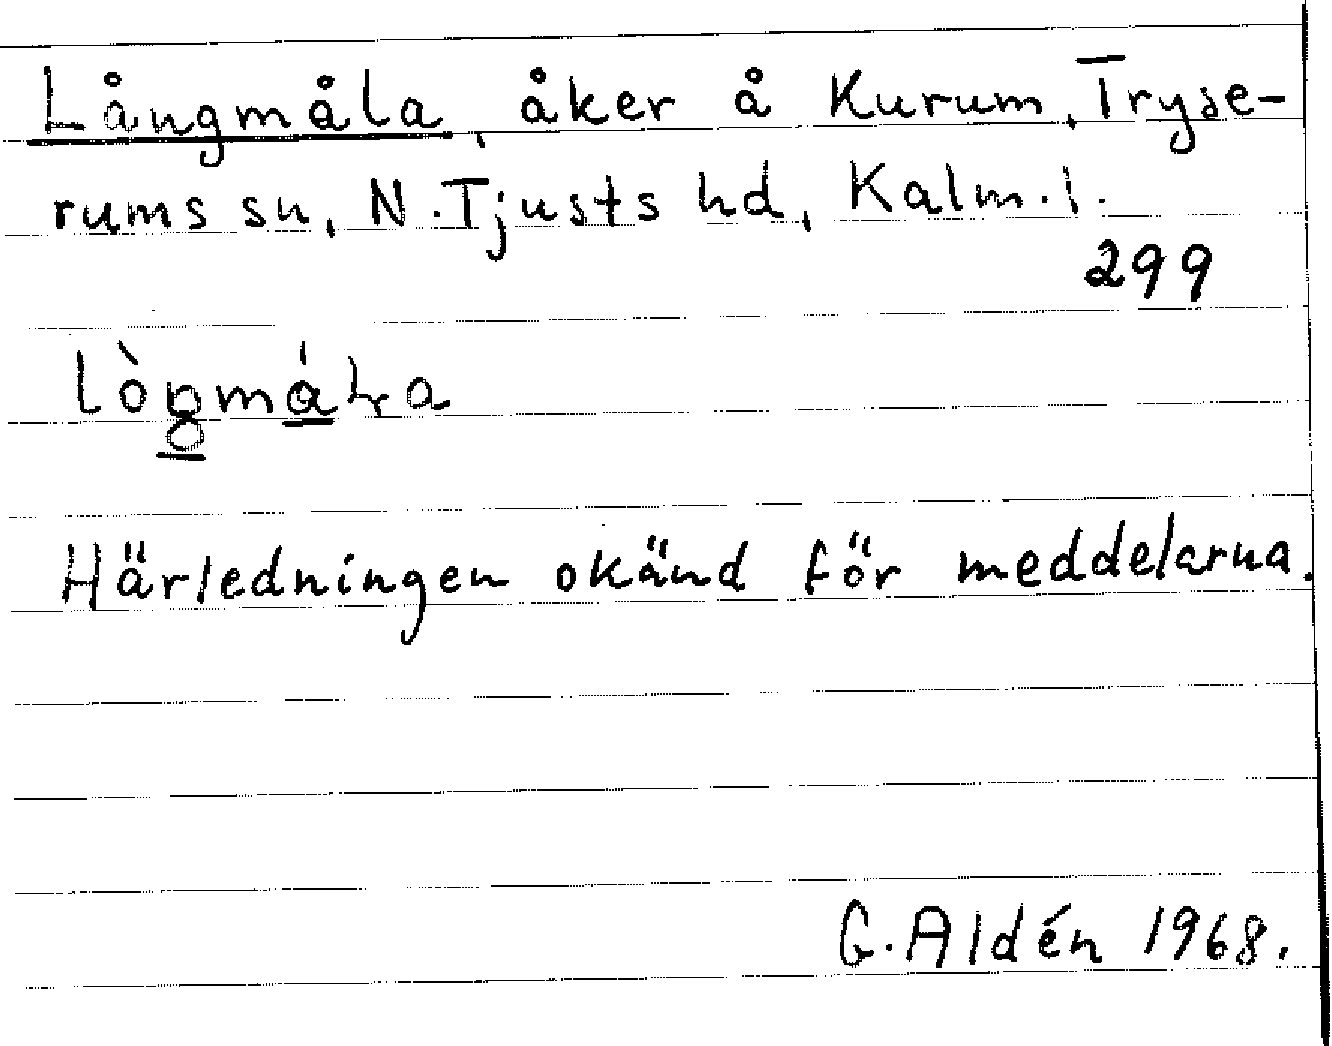 Långmåla, åker å Kurum, Tryse-
rums sn, N. Tjusts hd, Kalm. l.
299
Härledningen okänd för meddelarna.
G. Aldén 1968.